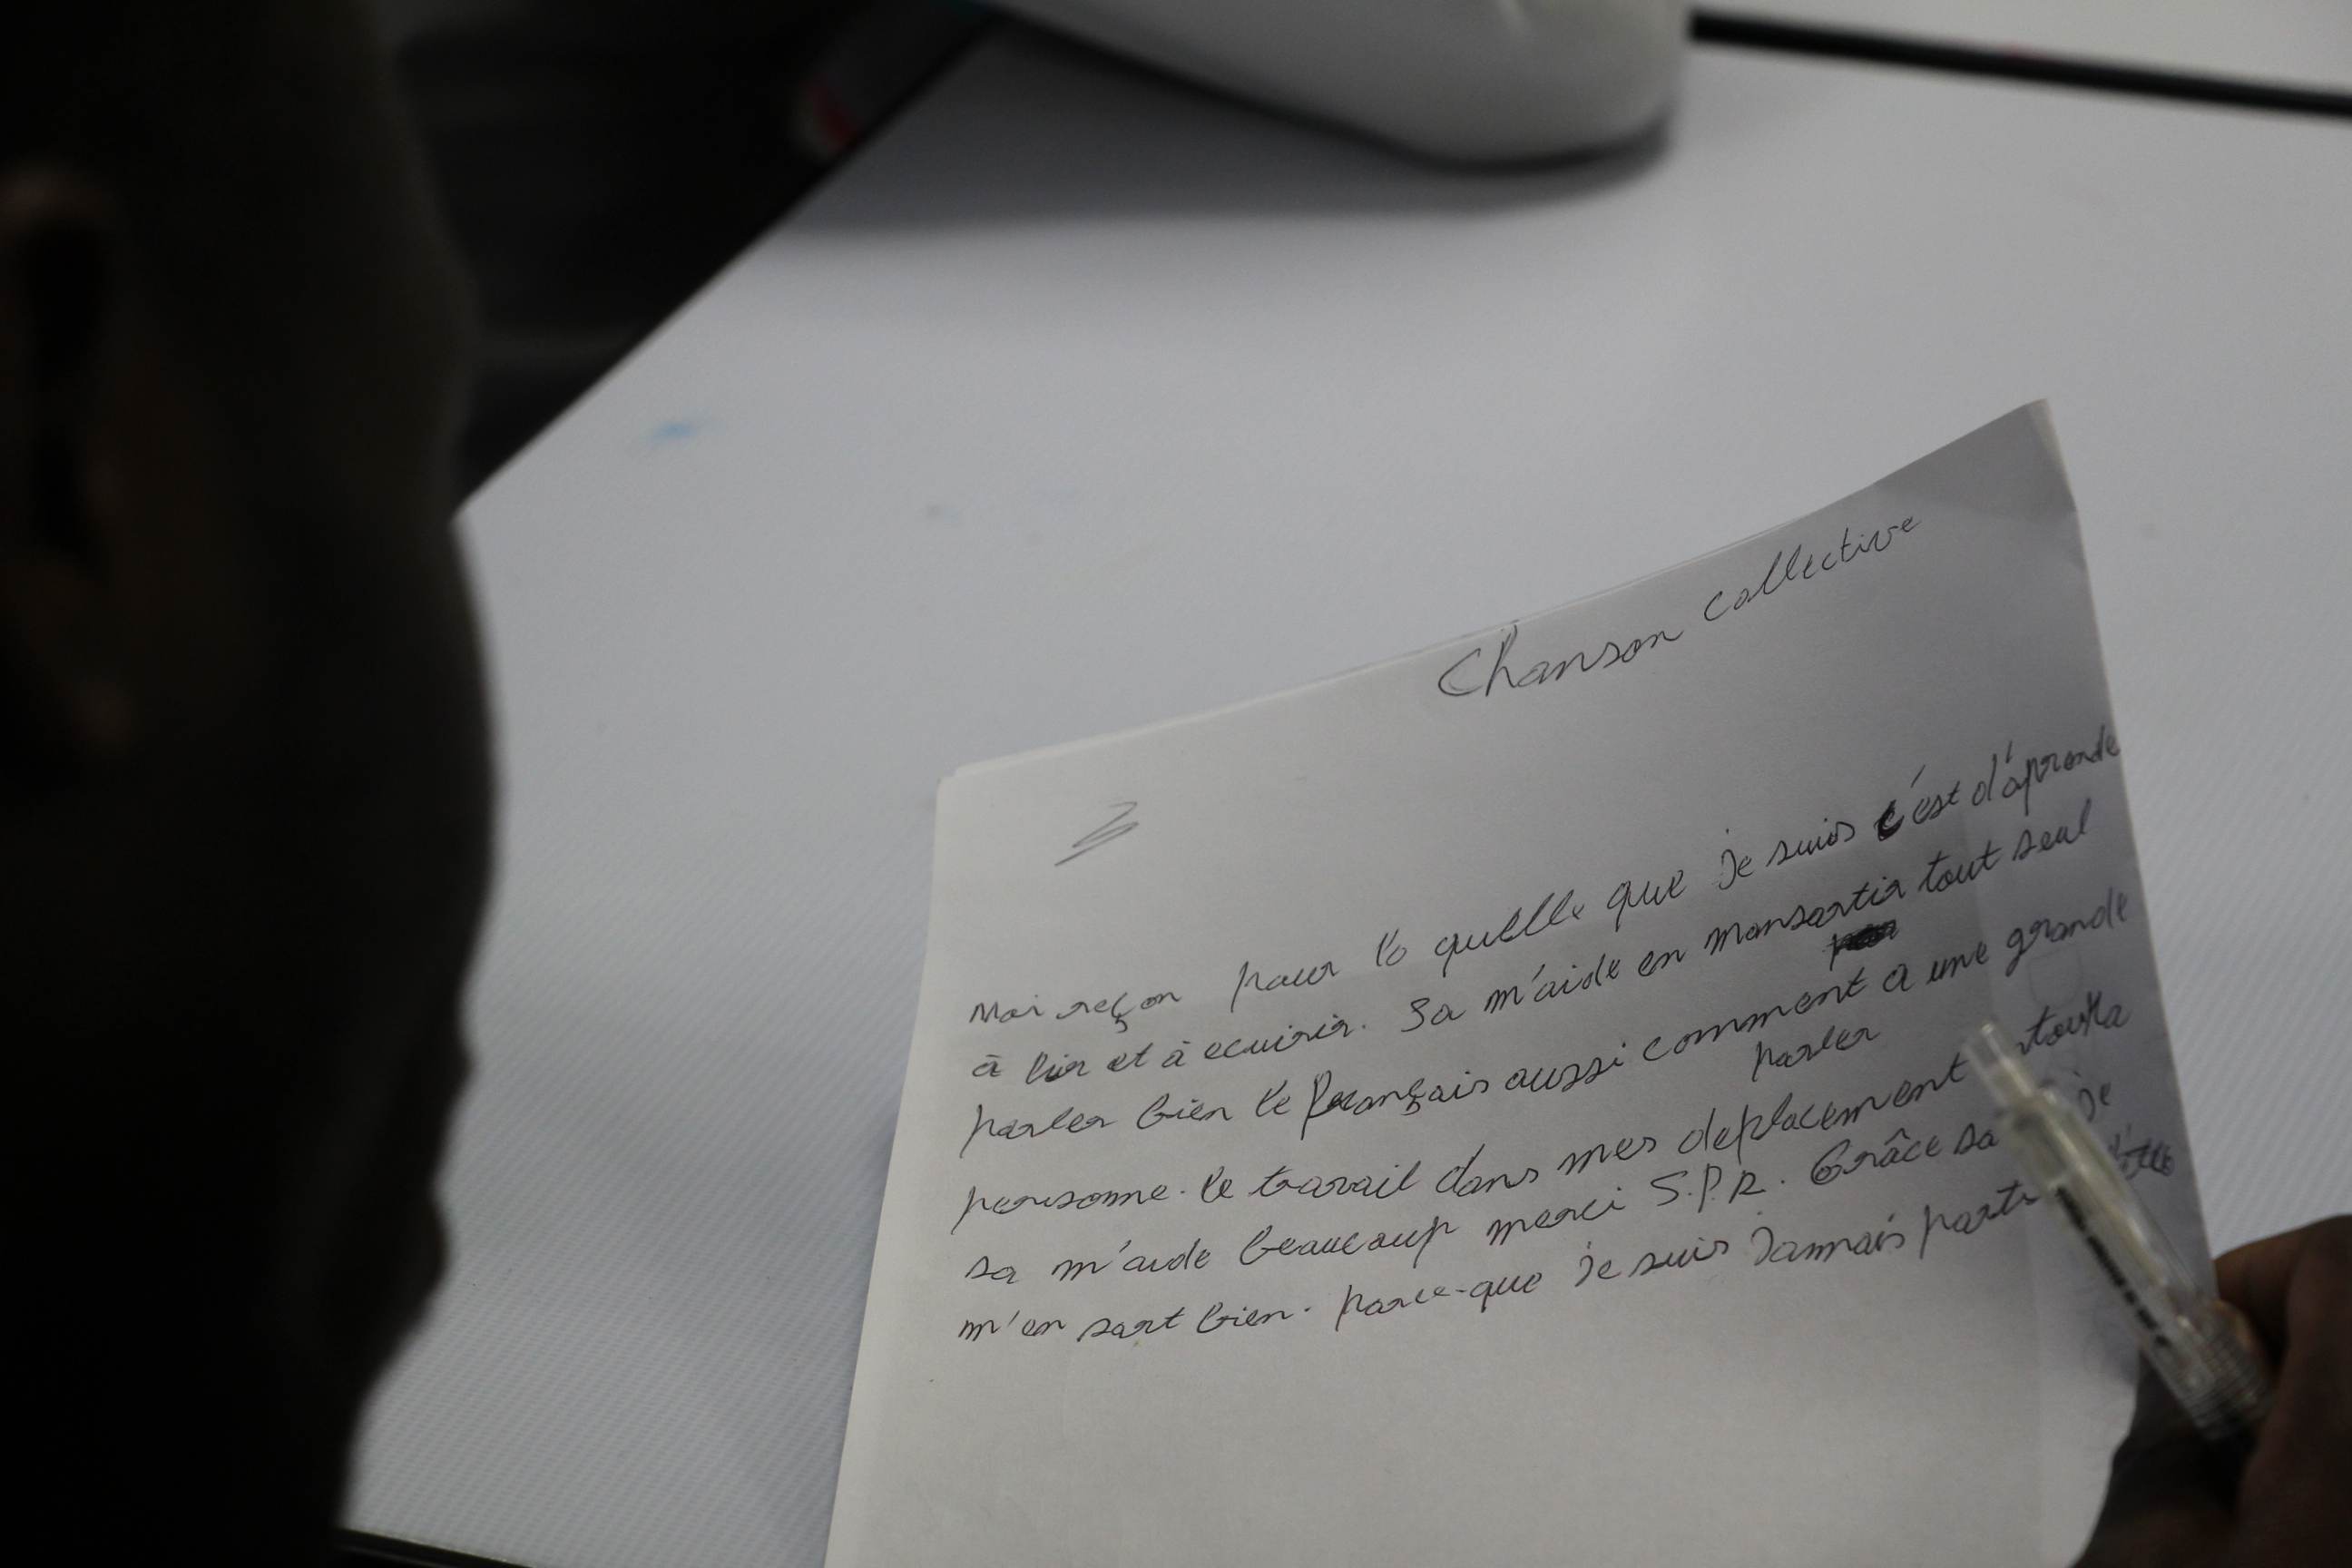 Chanson collective
Moi reçon pour lo quelle que je suis c'est d'aprende
à lir et à ecuirir. Sa m'aide en mansortir tout seul
parler bien le français aussi comment parler a une grande
personne. le travail dans mes deplacement
sa m'aide beaucoup merci S.P.R. Grâce sa je
m'en sart bien. parce-que je suis Jammais parti